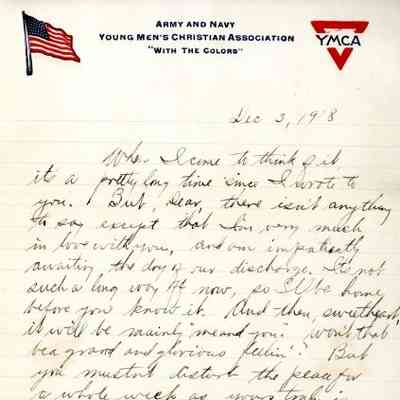 ARMY AND NAVY
YOUNG MEN'S CHRISTIAN ASSOCIATION
"WITH THE COLORS"
YMCA
Dec 3, 1918
When I come to think of it
it's a pretty long time since I wrote to
you. But, dear, there isn't anything
to say except that I'm very much
in love with you, and am impatiently
awaiting the day of our discharge. It's not
such a long way off now, so I'll be home
before you know it. And then, sweetheart,
it will be mainly "me and you". Won't that
be a grand and glorious feelin'? But
you mustn't disturb the peace for
a whole week as yours truly is